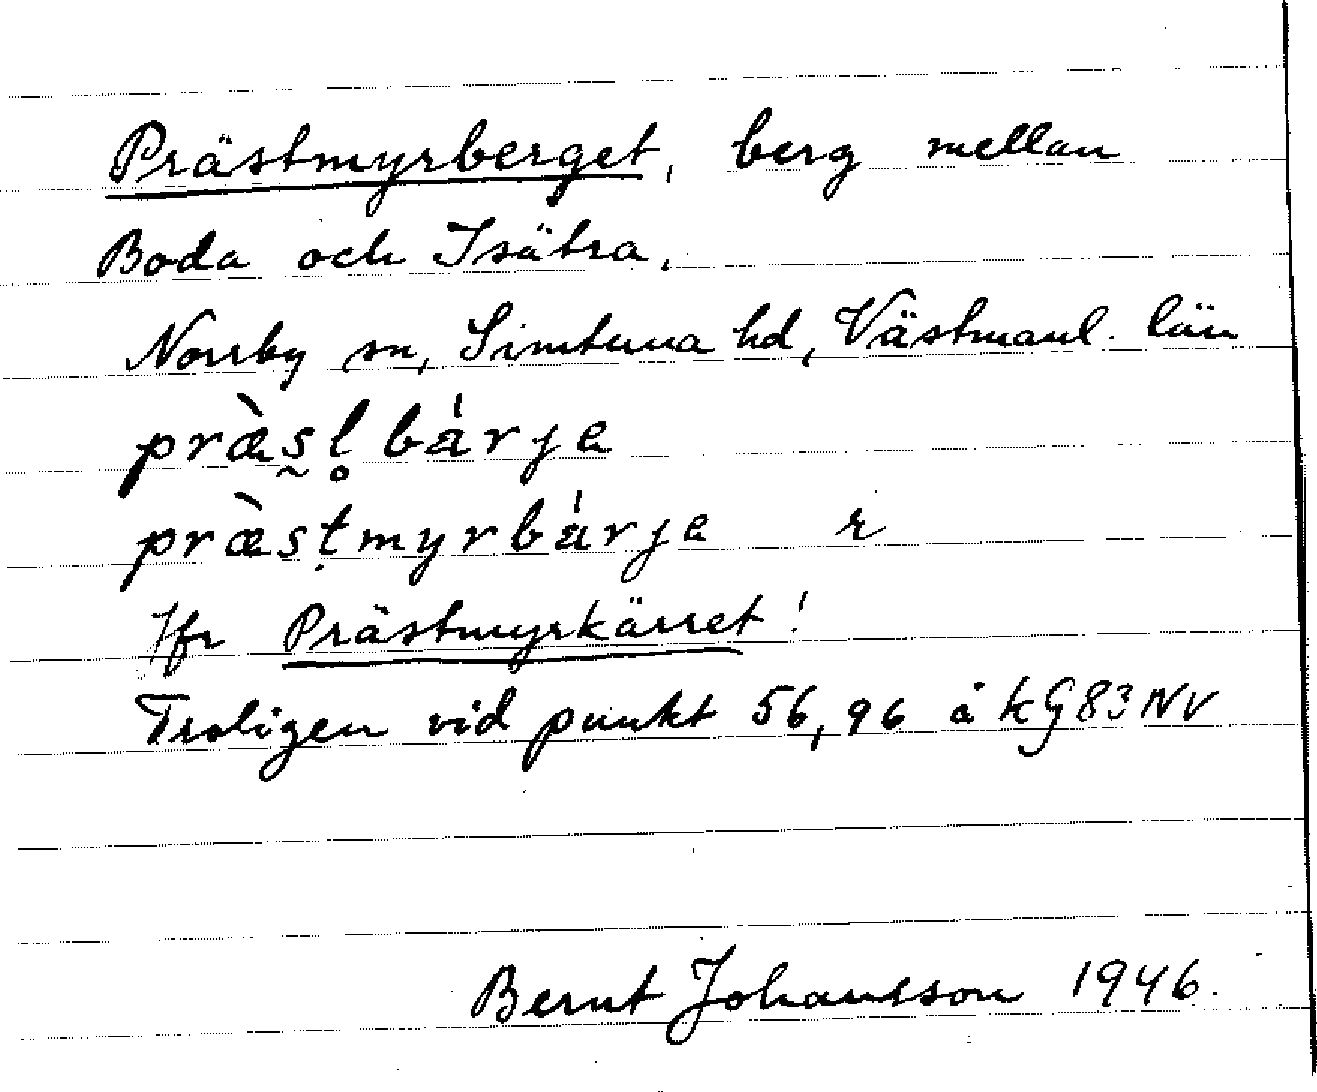 Prästmyrberget, berg mellan
Boda och Isätra,
Norrby sn, Simtuna hd, Västmanl. län
præ̀s̰l̥bá̈rjɐ
præ̀sṭmyrbá̈rjɐ r
Jfr Prästmyrkärret!
Troligen vid punkt 56,96 å kG83NV
Bernt Johansson 1946.